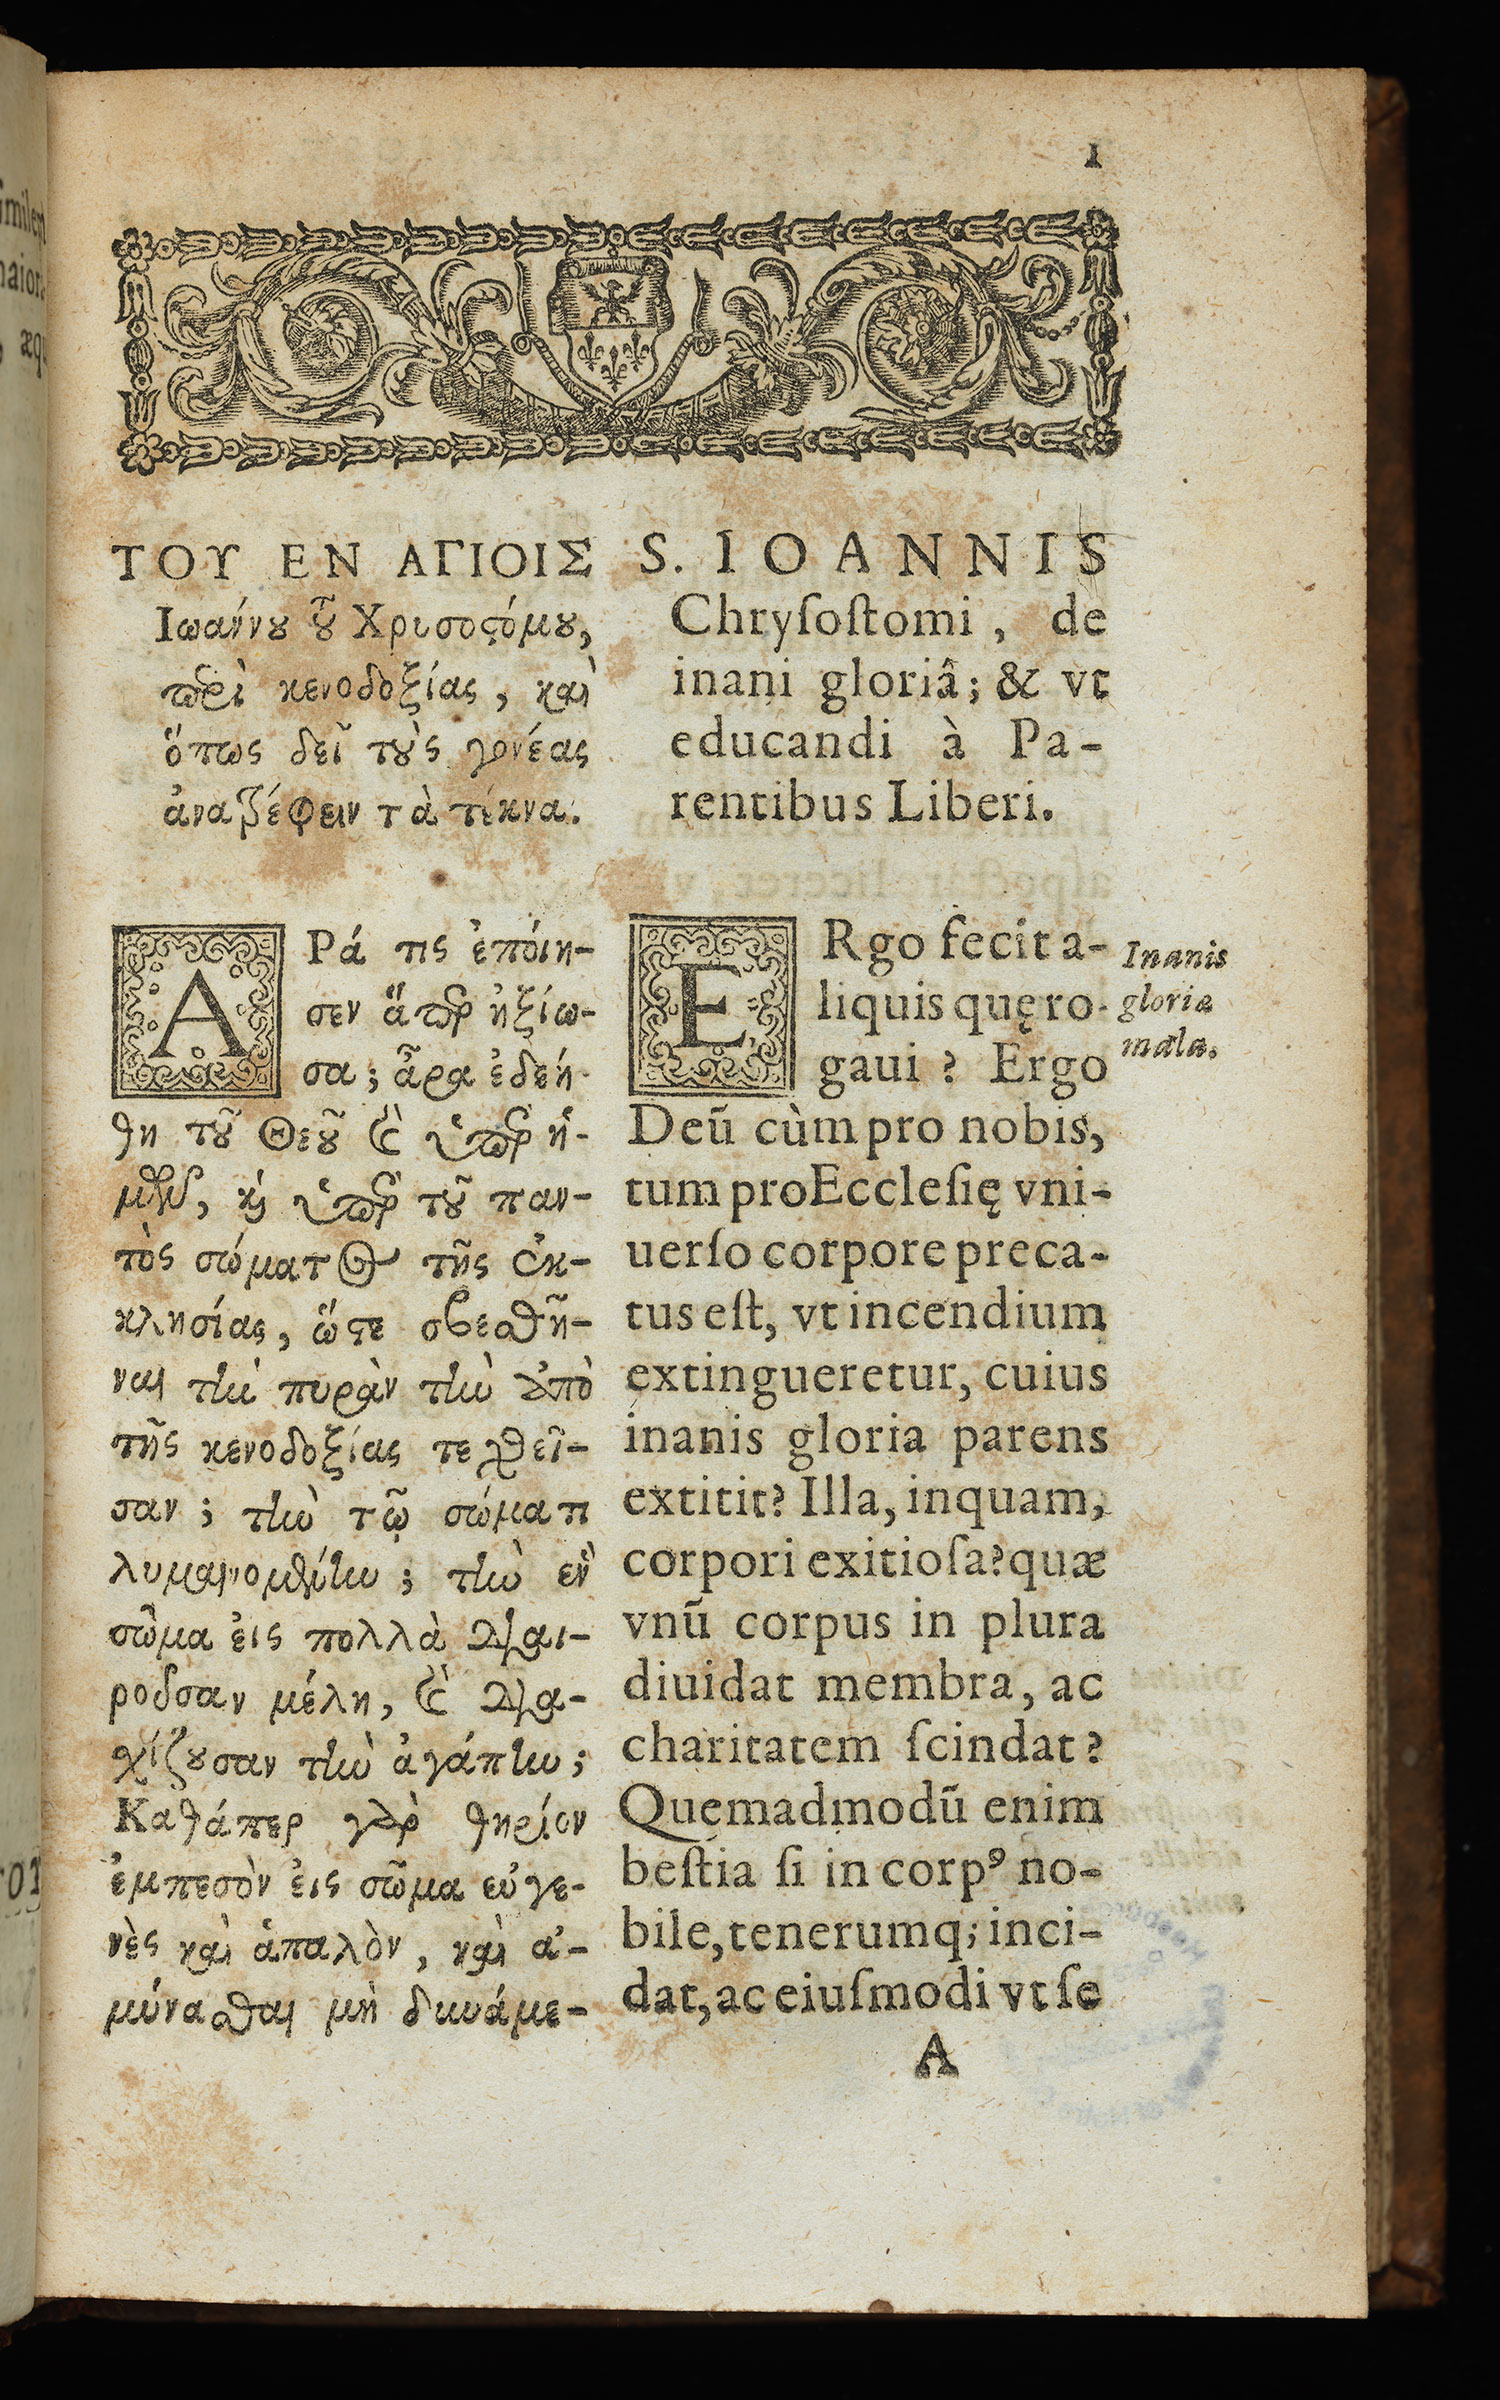 1
ΤΟΥ ΕΝ ΑΓΙΟΙΣ
Ιωαννου τοῦ Χρυσοστόμου,
περὶ κενοδοξίας, καὶ
ὅπως δεῖ τοὺς γονέας
ἀνατρέφειν τὰ τέκνα.
ΑΡά τις ἐποίη-
σεν ἅπερ ἠξίω-
σα; ἆρα ἐδεή-
θη τοῦ Θεοῦ καὶ ὑπὲρ ἡ-
μῶν, καὶ ὑπὲρ τοῦ παν-
τὸς σώματος τῆς ἐκ-
κλησίας, ὥστε σβεσθῆ-
ναι τὴν πυρὰν τὴν ἀπὸ
τῆς κενοδοξίας τεχθεῖ-
σαν; τὴν τῷ σώματι
λυμαινομένην; τὴν ἓν
σῶμα εἰς πολλὰ διαι-
ροῦσαν μέλη, καὶ δια-
σχίζουσαν τὴν ἀγάπην;
Καθάπερ γὰρ θηρίον
ἐμπεσὸν εἰς σῶμα εὐγε-
νὲς καὶ ἁπαλὸν, καὶ ἀ-
μύνασθαι μὴ δυνάμε-
S. IOANNIS
Chryſoſtomi, de
inani gloriâ; & vt
educandi à Pa-
rentibus Liberi.
ERgo fecit a-
liquis quę ro-
gaui? Ergo
Deũ cùm pro nobis,
tum pro Eccleſię vni-
uerſo corpore preca-
tus eſt, vt incendium
extingueretur, cuius
inanis gloria parens
extitit? Illa, inquam,
corpori exitioſa? quæ
vnũ corpus in plura
diuidat membra, ac
charitatem ſcindat?
Quemadmodũ enim
beſtia ſi in corpꝰ no-
bile, tenerumq; inci-
dat, ac eiuſmodi vt ſe
Inanis
gloria
mala.
A